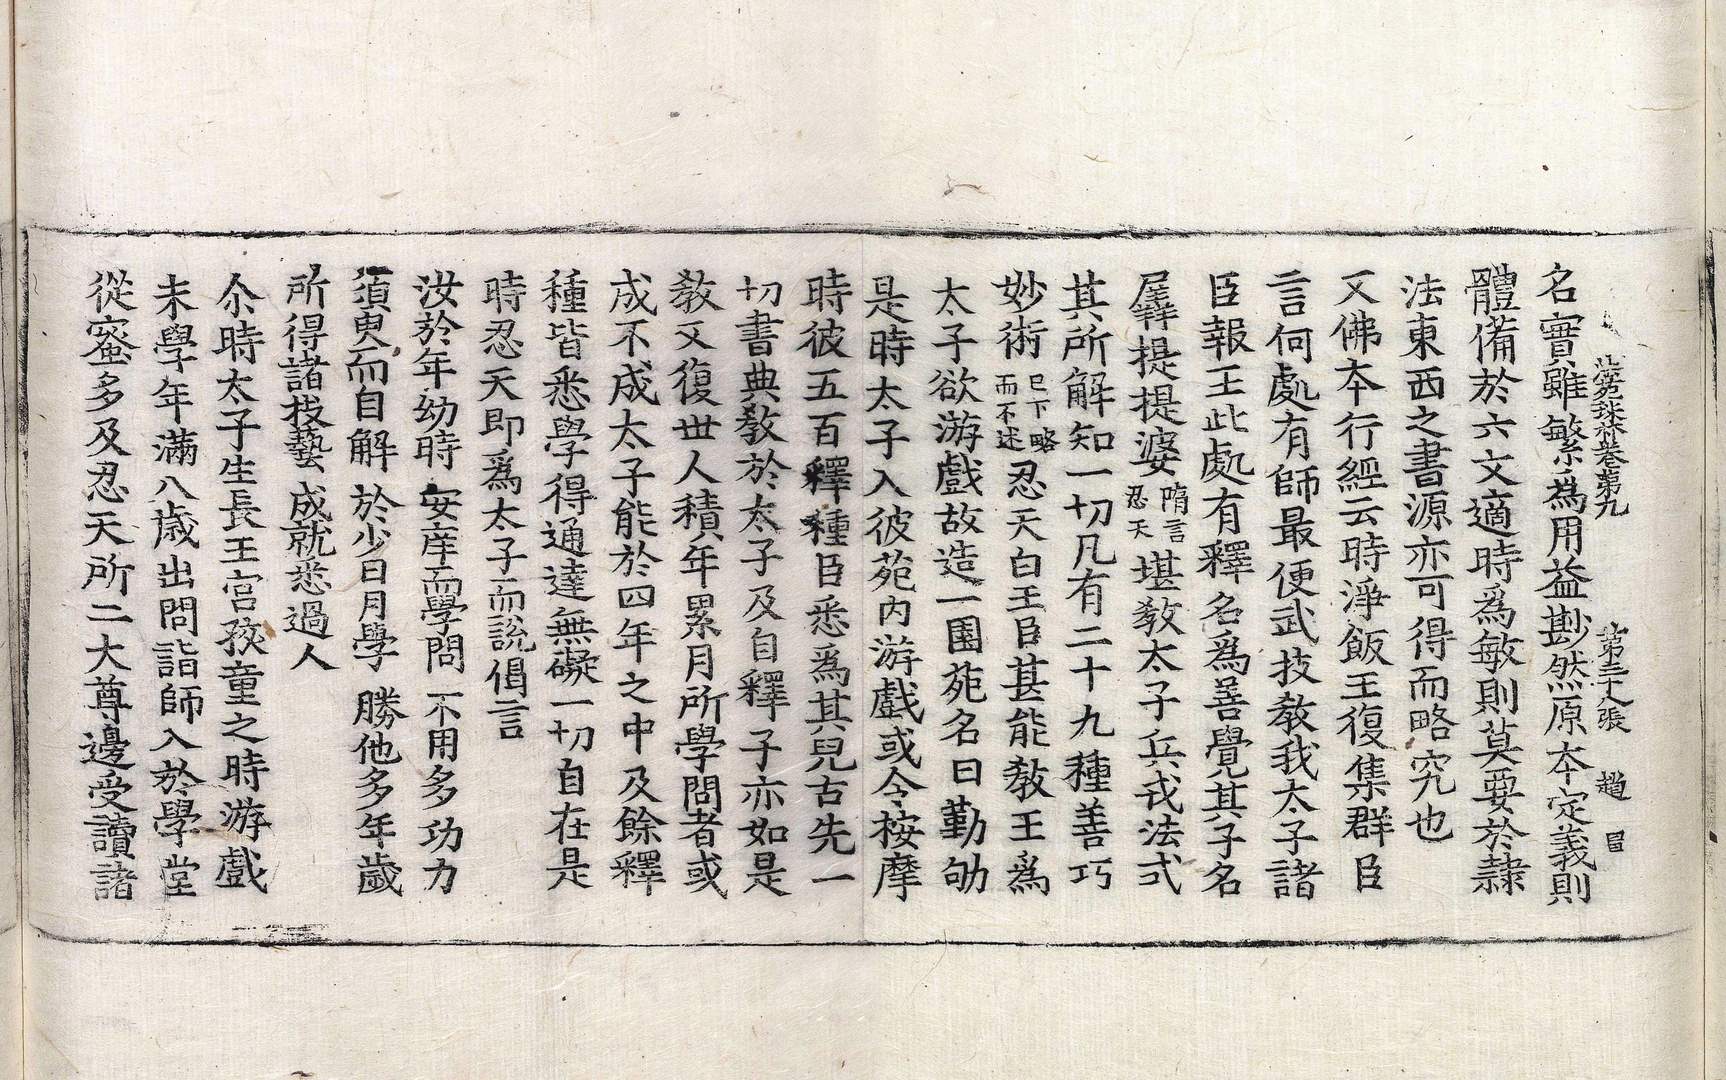 法苑珠林卷第九 第三十八張 趙 冒
名實雖繁爲用益尠然原本定義則
體備於六文適時爲敏則莫要於隷
法東西之書源亦可得而略究也
又佛本行經云時淨飯王復集群臣
言何處有師最便武技教我太子諸
臣報王此處有釋名爲善覺其子名
羼提提婆隋言忍天堪教太子兵戎法式
其所解知一切凡有二十九種善巧
妙術已下略而不述忍天白王臣甚能教王爲
太子欲游戲故造一園苑名曰勤劬
是時太子入彼苑內游戲或令按摩
時彼五百釋種臣悉爲其兒古先一
切書典教於太子及自釋子亦如是
教又復世人積年累月所學問者或
成不成太子能於四年之中及餘釋
種皆悉學得通達無礙一切自在是
時忍天即爲太子而說偈言
汝於年幼時 安庠而學問 不用多功力
須臾而自解 於少日月學 勝他多年歲
所得諸技藝 成就悉過人
尒時太子生長王宮孩童之時游戲
未學年滿八歲出問詣師入於學堂
從蜜多及忍天所二大尊邊受讀諸